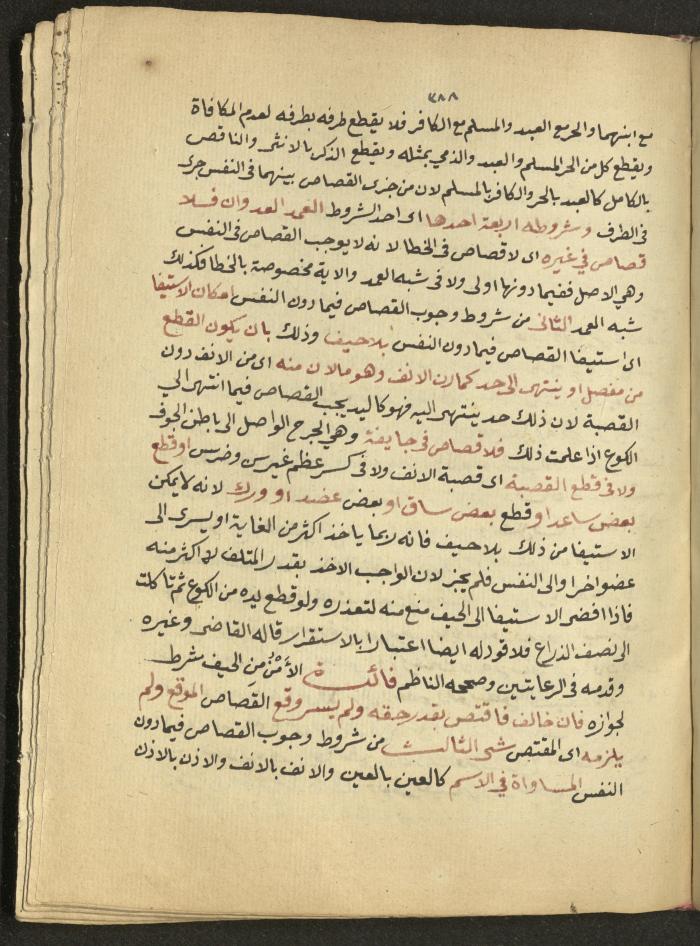 ٣٨٨
مع ابنهما والحر مع العبد والمسلم مع الكافر فلا يقطع طرفه بطرفه لعدم المكافاة
ويقطع كل من الحر المسلم والعبد والذمي بمثله ويقطع الذكر بالانثى والناقص
بالكامل كالعبد بالحر والكافر بالمسلم لان من جرى القصاص بينهما في النفس جرى
في الطرف وشروطه اربعة احدها اى احد الشروط العمد العدوان فلا
قصاص في غيره اى لا قصاص في الخطا لانه لا يوجب القصاص في النفس
وهي الاصل ففيما دونها اولى ولا في شبه العمد والاية مخصوصة بالخطا فكذلك
شبه العمد الثانى من شروط وجوب القصاص فيما دون النفس امكان الاستيفا
اى استيفا القصاص فيما دون النفس بلا حيف وذلك بان يكون القطع
من مفصل او ينتهى الى حد كمارن الانف وهو ما لان منه اى من الانف دون
القصبة لان ذلك حد ينتهى اليه فهو كاليد يجب القصاص فيما انتهى الي
الكوع اذا علمت ذلك فلا قصاص في جايفة وهي الجرح الواصل الى باطن الجوف
ولا في قطع القصبة اى قصبة الانف ولا في كسر عظم غير سن وضرس او قطع
بعض ساعد او قطع بعض ساق او بعض عضد او ورك لانه لا يمكن
الاستيفا من ذلك بلا حيف فانه ربما ياخذ اكثر من الغاية او يسرى الى
عضو اخر او الى النفس فلم يجز لان الواجب الاخذ بقدر المتلف لا اكثر منه
فاذا افضى الاستيفا الى الحيف منع منه لتعذره ولو قطع يده من الكوع ثم تاكلت
الى نصف الذراع فلا قود له ايضا اعتبارا بالاستقرار قاله القاضى وغيره
وقدمه في الرعايتين وصححه الناظم فائدة الأمن من الحيف شرط
لجوازه فان خالف فاقتص بقدر حقه ولم يسر وقع القصاص الموقع ولم
يلزمه اى المقتص شى الثالث من شروط وجوب القصاص فيما دون
النفس المساواة في الاسم كالعين بالعين والانف بالانف والاذن بالاذن